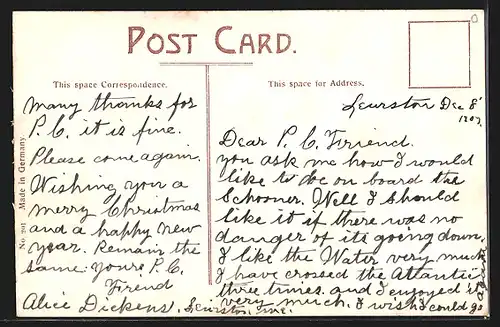 POST CARD.
This space Correspondence.
This space for Address.
No 201 Made in Germany.
Many thanks for
P. C. it is fine.
Please come again.
Wishing you a
merry Christmas
and a happy new
year. Remain the
same. Yours P. C.
Firend
Alice Dickens, Leurston, Me.
Leurston Dec 8'
1907
Dear P. C. Firriend.
you ask me how I would
like to be on board the
Schooner. Well I should
like it if there was no
danger of its going down.
I like the Water very much
I have crossed the Atlantic
three times. and I enjoyed it
very much. I wish I could go